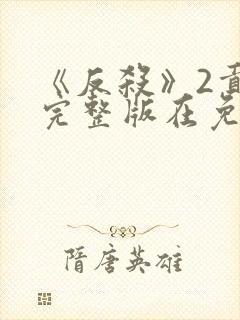 《反杀》2
完整版在免
隋唐英雄